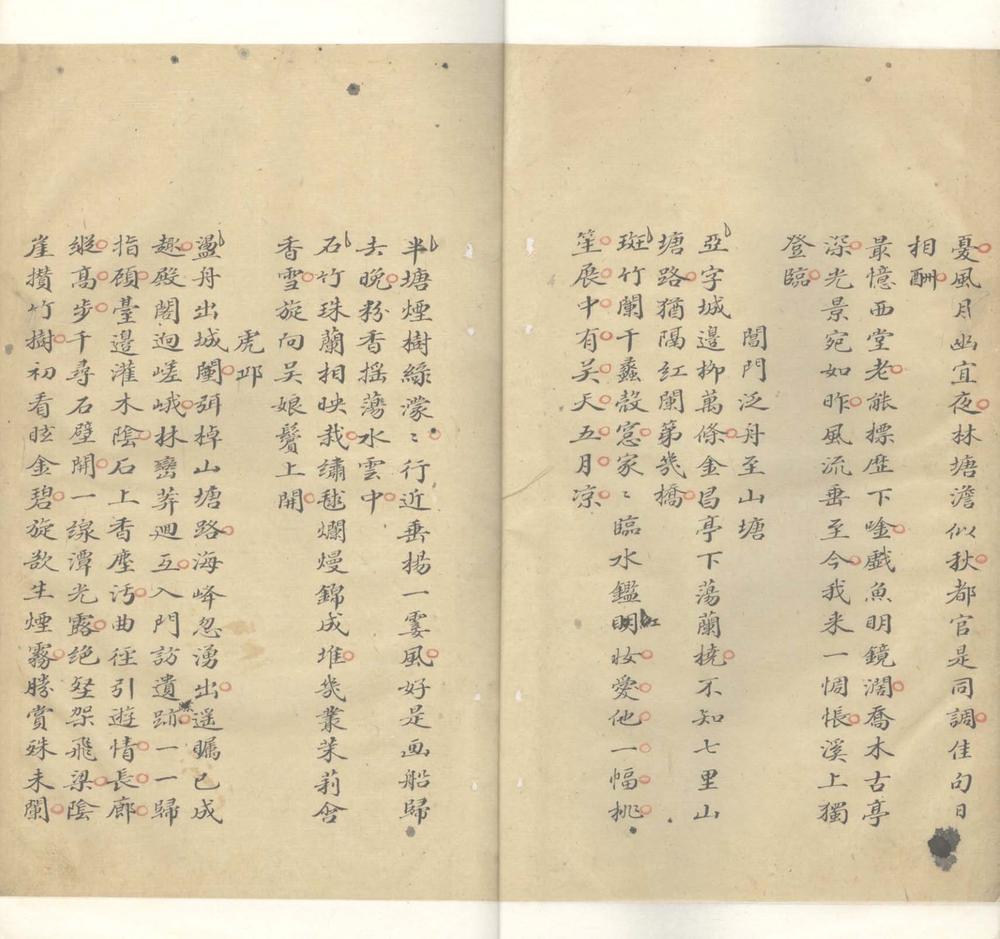 憂風月幽宜夜林塘澹似秋都官是同調佳句日
相酬
最憶西堂老能摽歴下唫戲魚明鏡濶喬木古亭
深光景宛如昨風流垂至今我来一惆悵溪上獨
登臨
閶門泛舟至山塘
亞字城邊柳萬條金昌亭下蕩蘭橈不知七里山
塘路猶隔紅闌第幾橋
斑竹闌干蠡殻窓家〻臨水鑑明妝愛他一幅桃
紅
笙展中有吴天五月凉
半塘煙樹緑濛〻行近垂楊一霎風好是画船歸
去晚粉香摇蕩水雲中
石竹珠蘭相映栽繡毬爛熳錦成堆幾叢茉莉含
香雪旋向吴娘鬢上開
虎邱
盪舟出城闉弭棹山塘路海峰忽湧出遥矚已成
趣殿閣迥嵯峨林巒莽迴互入門訪遺跡一一歸
指顧臺邊灌木陰石上香塵汚曲徑引遊情長廊
縱高步千尋石壁開一線潭光露絶壑架飛梁陰
崖攢竹樹初看眩金碧旋欲生煙霧勝賞殊未闌